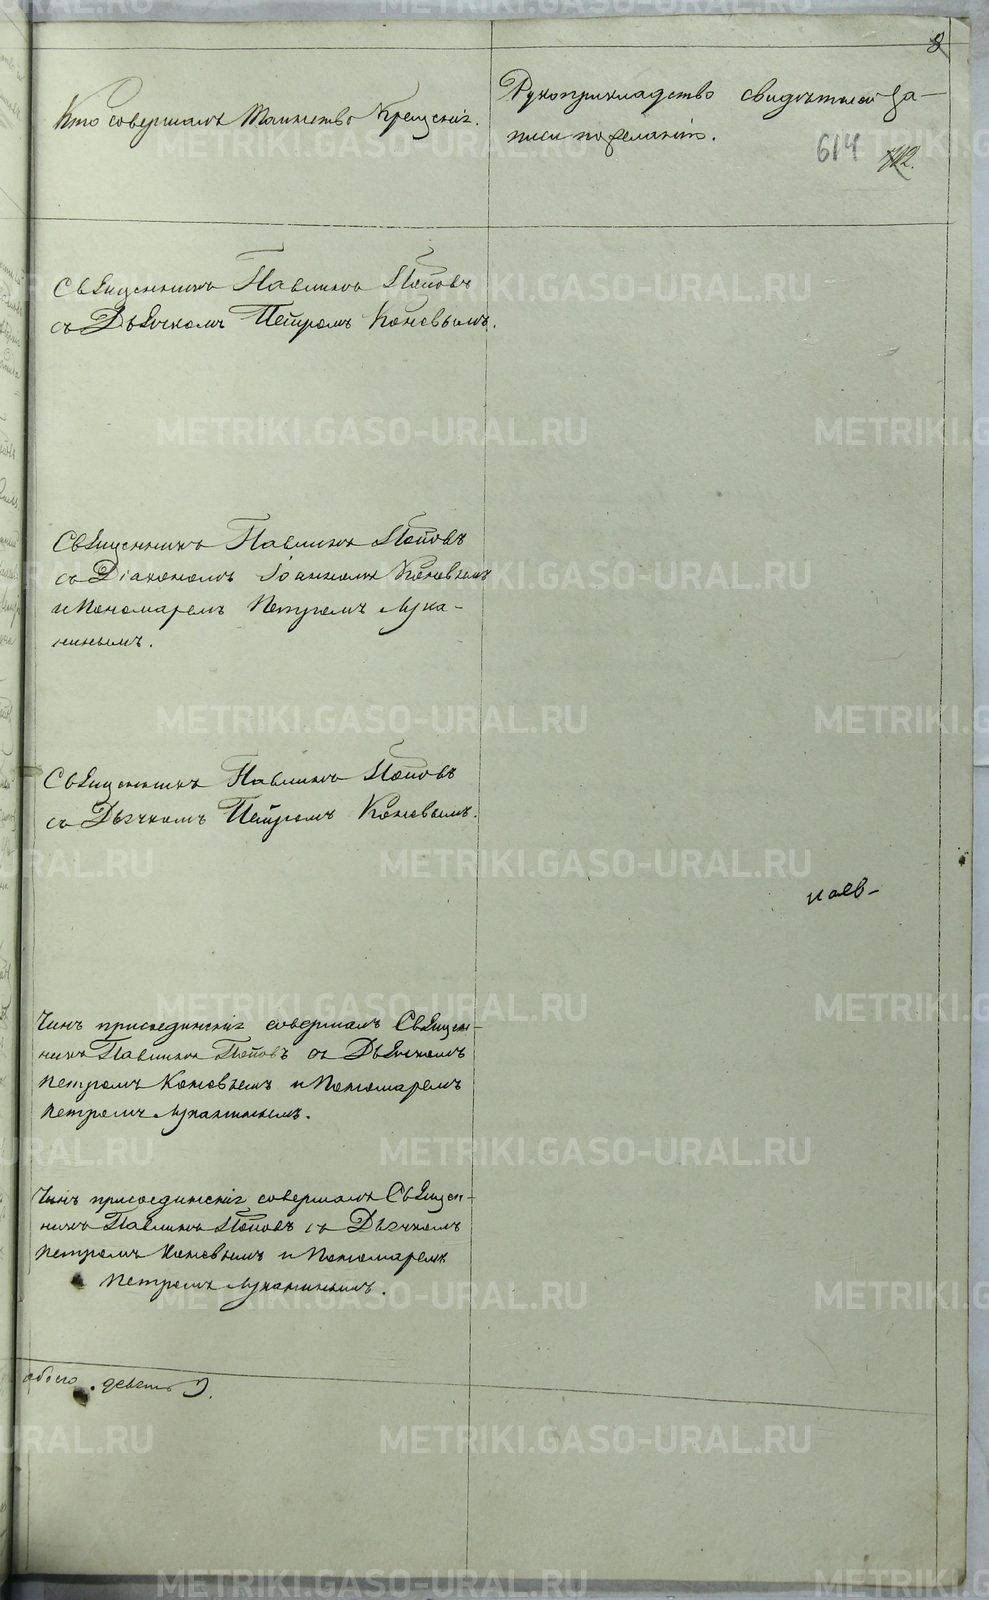 8
Кто совершалъ Таинство Крещенія.
Рукоприкладство свидѣтелей за-
писи по желанію.
614
Священникъ Павлинъ Поповъ
съ Дьячкомъ Петромъ Коневымъ.
Священникъ Павлинъ Поповъ
съ Діакономъ Іоанномъ Коневымъ
и Пономаремъ Петромъ Лука-
нинымъ.
Священникъ Павлинъ Поповъ
съ Дьячкомъ Петромъ Коневымъ.
Чинъ присоединенія совершалъ Священ-
никъ Павлинъ Поповъ съ Дьячкомъ
Петромъ Коневымъ и Пономаремъ
Петромъ Луканинымъ.
Чинъ присоединенія совершалъ Священ-
никъ Павлинъ Поповъ съ Дьячкомъ
Петромъ Коневымъ и Пономаремъ
Петромъ Луканинымъ.
обоего девять 9.
METRIKI.GASO-URAL.RU